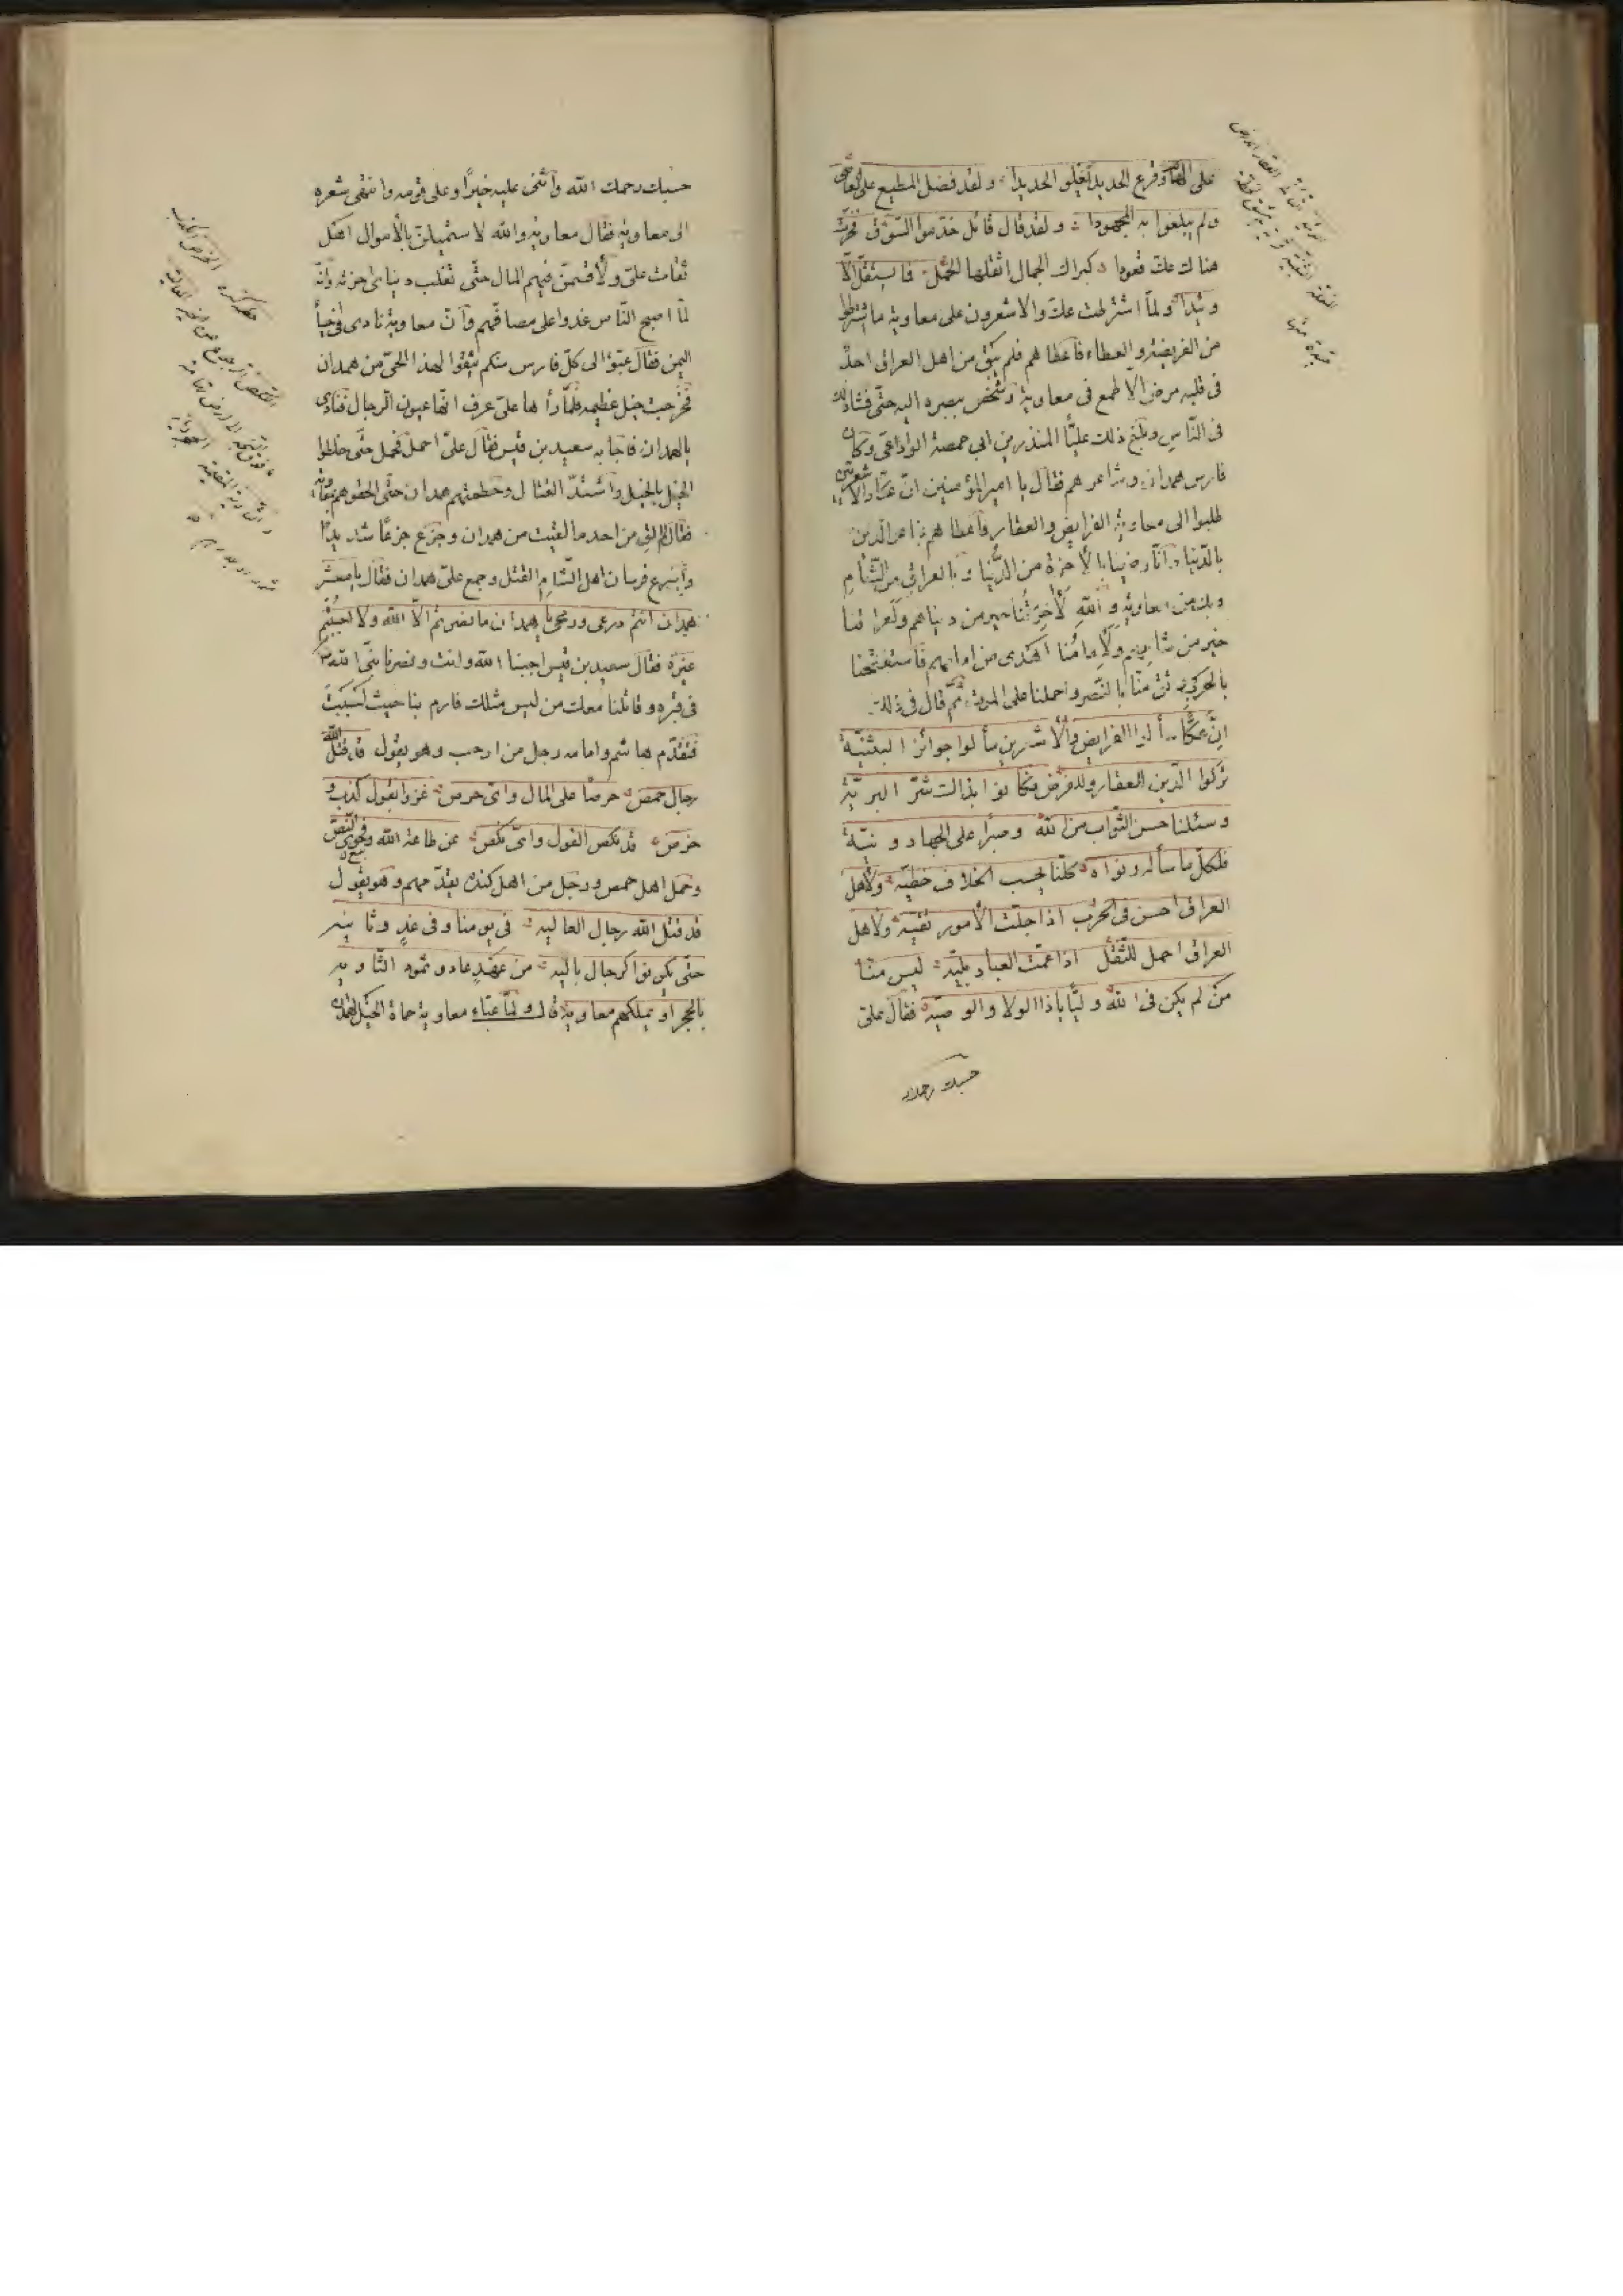 على الهام وقرع الحديد يعلو الحديدا ولقد فضل المطيع على العاصى
ولم يبلغوا به المجهودا ولقد قال قائل خدموا السوق فخرت
هناك عك قعودا كبراك الجمال اثقلها الحمل فما يستقل الا
وئيدا ولما اشترطت عك والاشعرون على معاوية ما اشترطوا
من الفريضة والعطاء فاعطاهم فلم يبق من اهل العراق احد
فى قلبه مرض الا طمع فى معاوية وشخص ببصره اليه حتى فشا ذلك
فى الناس وبلغ ذلك عليا المنذر بن ابى حمصة الوادعى وكان
فارس همدان وشاعرهم فقال يا امير المؤمنين ان عكا والاشعريين
طلبوا الى معاوية الفرايض والعقار فاعطاهم فباعوا الدين
بالدنيا وانا رضينا بالآخرة من الدنيا وبالعراق من الشام
وبك من معاوية والله لآخرتنا خير من دنياهم ولعراقنا
خير من شامهم ولامامنا اهدى من امامهم فاستفتحنا
بالحرب وثق منا بالنصر واحملنا على الموت ثم قال فى ذلك
ان عكا سألوا الفرايض والاشعرين سألوا جوائز البثنية
تركوا الدين للعقار وللفرض فكانوا بذالك شر البرية
وسئلنا حسن الثواب من الله وصبرا على الجهاد ونية
فلكل ما سأله ونواه كلنا يحسب الخلاف خطية ولاهل
العراق احسن فى الحرب اذا جلت الأمور نقية ولاهل
العراق احمل للثقل اذا عمت العباد بلية ليس منا
من لم يكن فى الله وليا يا ذا الولا والوصية فقال على
حسبك رحمك
حسبك رحمك الله واثنى عليه خيرا وعلى قومه وانتهى شعره
الى معاوية فقال معاوية والله لاستميلن بالأموال اهل
ثقات على ولأقسمن فيهم المال حتى تغلب دنياى اخرته وانه
لما اصبح الناس غدوا على مصافهم وان معاوية نادى فى احياء
اليمن فقال عبوا الى كل فارس منكم يثقوا لهذا الحى من همدان
فخرجت خيل عظيمة فلما رأها على عرف انها عيون الرجال فنادى
يالهمدان فاجابه سعيد بن قيس فقال على احمل فحمل حتى خلطوا
الخيل بالخيل واشتد القتال وحطمتهم همدان حتى الحقوهم بمعاوية
فقال ما لقى من احد ما لقيت من همدان وجزع جزعا شديدا
واسرع فرسان اهل الشام القتل وجمع على همدان فقال يا معشر
همدان انتم درعى ورمحى يا همدان ما نصرتم الا الله ولا اجبتم
غيره فقال سعيد بن قيس اجبنا الله وانت ونصرنا نبى الله
فى قبره وقاتلنا معك من ليس مثلك فارم بنا حيث احببت
فتقدم هاشم وامامه رجل من ارحب وهو يقول قد قتل الله
رجال حمص حرصا على المال واى حرص غزوا بقول كذب و
خرص قد نكص القول واى نكص عن طاعة الله وفحوى النص
وحمل اهل حمص ورجل من اهل كندة يقدمهم وهو يقول
قد قتل الله رجال العاليه فى يومنا وفى غد وثانيه
حتى يكونوا كرجال باليه من عهد عاد وثمود الثاويه
بالحجر او يملكهم معاوية قال ولما عباء معاوية حماة الخيل لهمدان